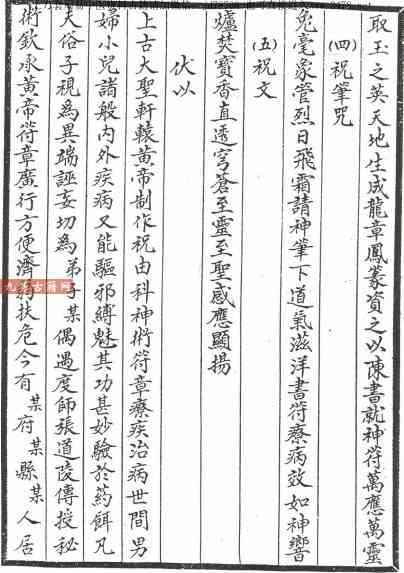 取玉之英天地生成龍章鳳篆資之以陳書就神符萬應萬靈
(四)祝筆咒
兔毫象管烈日飛霜請神筆下道氣滋洋書符療病效如神響
(五)祝文
爐焚寶香直透穹蒼至靈至聖感應顯揚
伏以
上古大聖軒轅黃帝制作祝由科神術符章療疾治病世間男
婦小兒諸般內外疾病又能驅邪縛魅其功甚妙驗於葯餌凡
夫俗子視為異端誣妄切為弟子某偶遇度師張道陵傳授秘
術欽承黃帝符章廣行方便濟弱扶危今有某府某縣某人居
九万古籍网